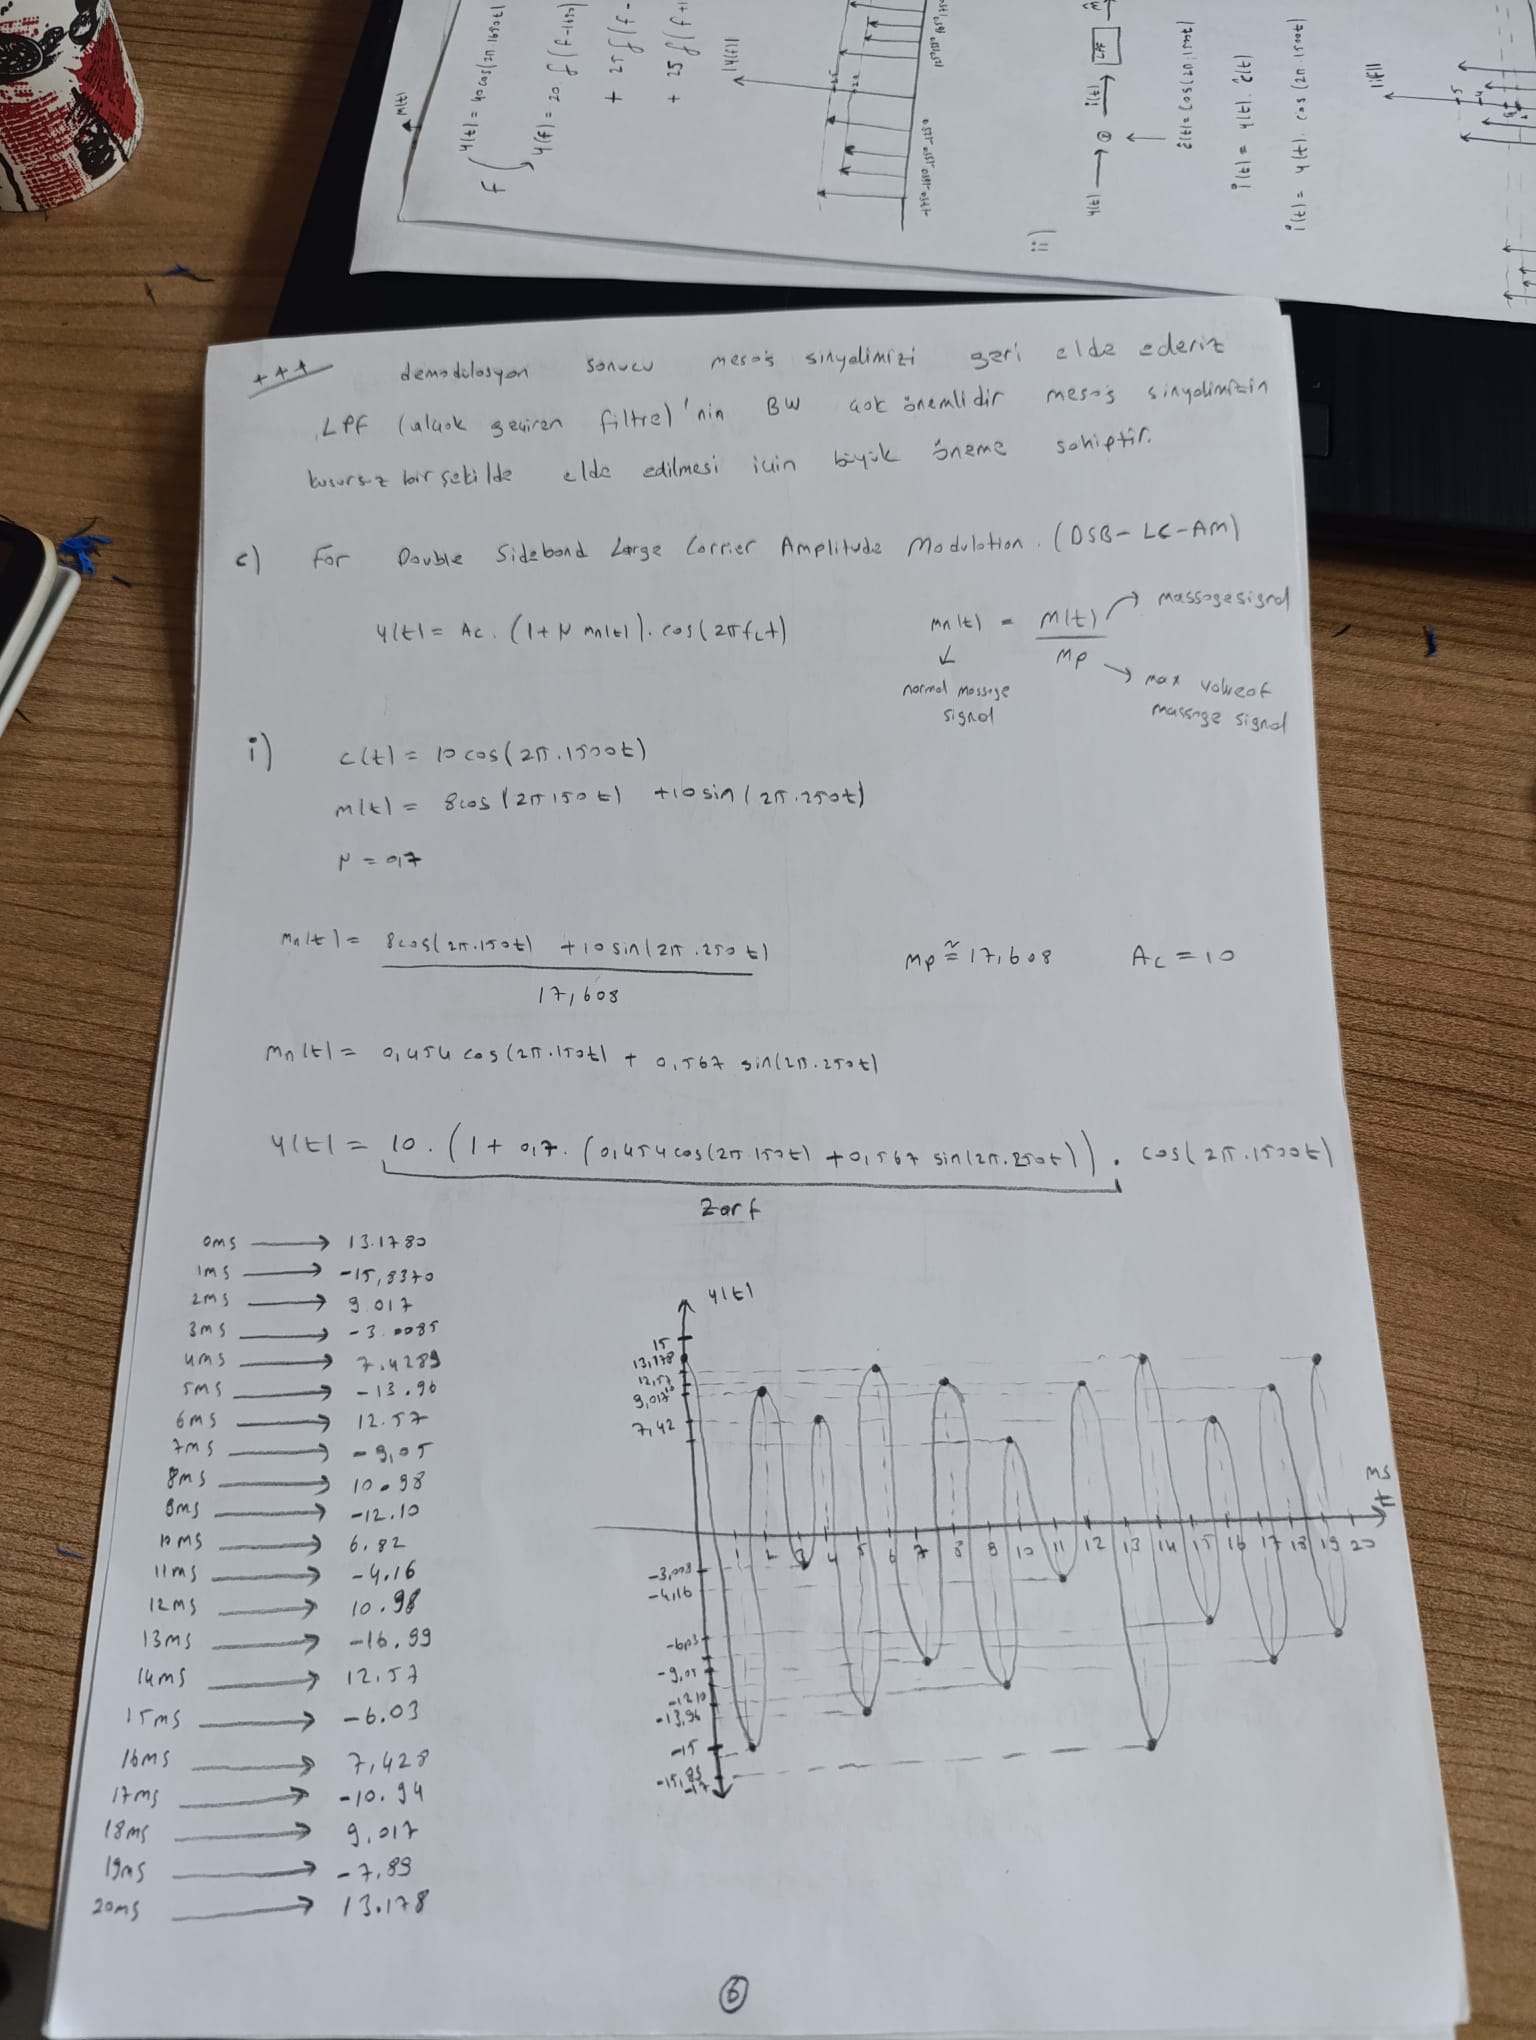 M(t)
y(t) = 40 cos(2π.1690t)
f
y(f) = 20 δ(f-1690)
+ 25 δ(f-
+ 25 δ(f+
|y(f)|
ii)
y(t) → ⊗ i(t) → LPF
ĉ(t) = cos(2π.1500t)
i(t) = y(t). ĉ(t)
i(t) = y(t). cos(2π.1500t)
|i(f)|
+++ demodülasyon sonucu mesaj sinyalimizi geri elde ederiz
LPF (alçak geçiren filtre)'nin BW çok önemlidir mesaj sinyalimizin
kusursuz bir şekilde elde edilmesi için büyük öneme sahiptir.
c) For Double Sideband Large Carrier Amplitude Modulation. (DSB-LC-AM)
y(t) = Ac. (1+ μ mn(t)). cos(2πfct)
mn(t) = m(t) / Mp
massage signal
normal massage
signal
max value of
massage signal
i) c(t) = 10 cos(2π.1500t)
m(t) = 8cos(2π150t) +10sin(2π.250t)
μ = 0,7
mn(t) = 8cos(2π.150t) +10sin(2π.250t) / 17,608
Mp ≅ 17,608
Ac = 10
mn(t) = 0,454 cos(2π.150t) + 0,567 sin(2π.250t)
y(t) = 10. (1+ 0,7. (0,454cos(2π.150t) +0,567 sin(2π.250t)). cos(2π.1500t)
Zarf
0ms → 13.1780
1ms → -15,8370
2ms → 9.017
3ms → -3.0085
4ms → 7.4289
5ms → -13.96
6ms → 12.57
7ms → -9,05
8ms → 10.98
9ms → -12.10
10ms → 6.82
11ms → -4.16
12ms → 10.98
13ms → -16.99
14ms → 12.57
15ms → -6.03
16ms → 7,428
17ms → -10.94
18ms → 9.017
19ms → -7.89
20ms → 13.178
y(t)
15
13,178
12,57
9,017
7,42
ms
t
1 2 3 4 5 6 7 8 9 10 11 12 13 14 15 16 17 18 19 20
-3,008
-4,16
-6,03
-9,05
-12.10
-13,96
-15
-15,83
-17
6